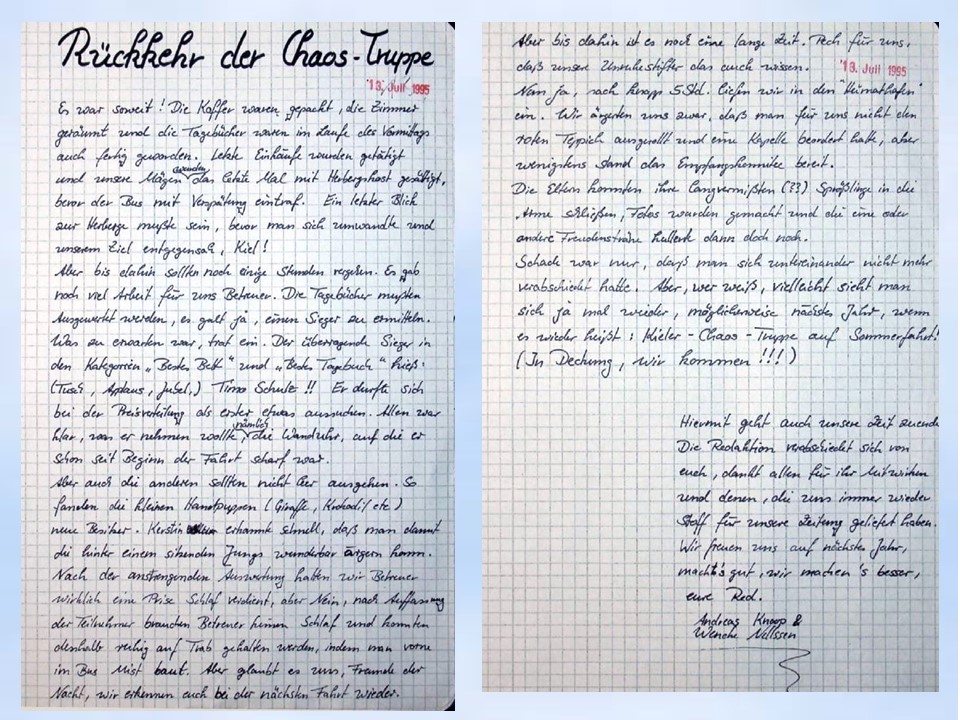 Rückkehr der Chaos-Truppe
13. Juli 1995
Es war soweit! Die Koffer waren gepackt, die Zimmer
geräumt und die Tagebücher waren im Laufe des Vormittags
auch fertig geworden. Letzte Einkäufe wurden getätigt
und unsere Mägen wurden das letzte Mal mit Herbergskost gesättigt,
bevor der Bus mit Verspätung eintraf. Ein letzter Blick
zur Herberge mußte sein, bevor man sich umwandte und
unserem Ziel entgegensah, Kiel!
Aber bis dahin sollten noch einige Stunden vergehen. Es gab
noch viel Arbeit für uns Betreuer. Die Tagebücher mußten
Ausgewertet werden, es galt ja, einen Sieger zu ermitteln.
Was zu erwarten war, traf ein. Der überragende Sieger in
den Kategorien "Bestes Bett" und "Bestes Tagebuch" hieß:
(Tusch, Applaus, Jubel,) Timo Schulz!! Er durfte sich
bei der Preisverteilung als erster etwas aussuchen. Allen war
klar, was er nehmen wollte, nämlich die Wanduhr, auf die er
schon seit Beginn der Fahrt scharf war.
Aber auch die anderen sollten nicht leer ausgehen. So
fanden die kleinen Handpuppen (Giraffe, Krokodil etc)
neue Besitzer. Kerstin erkannte schnell, daß man damit
die hinter einem sitzenden Jungs wunderbar ärgern kann.
Nach der anstrengenden Auswertung hatten wir Betreuer
wirklich eine Prise Schlaf verdient, aber Nein, nach Auffassung
der Teilnehmer brauchten Betreuer keinen Schlaf und konnten
deshalb ruhig auf Trab gehalten werden, indem man vorne
im Bus Mist baut. Aber glaubt es uns, Freunde der
Nacht, wir erkennen euch bei der nächsten Fahrt wieder.
Aber bis dahin ist es noch eine lange Zeit. Pech für uns,
daß unsere Unruhestifter das auch wissen.
13. Juli 1995
Nun ja, nach knapp 5 Std. liefen wir in den "Heimathafen"
ein. Wir ärgerten uns zwar, daß man für uns nicht den
roten Teppich ausgerollt und eine Kapelle beordert hatte, aber
wenigstens stand das Empfangskomitee bereit.
Die Eltern konnten ihre langvermißten (??) Sprößlinge in die
Arme schließen, Fotos wurden gemacht und die eine oder
andere Freudensträne kullerte dann doch noch.
Schade war nur, daß man sich untereinander nicht mehr
verabschiedet hatte. Aber, wer weiß, vielleicht sieht man
sich ja mal wieder, möglicherweise nächstes Jahr, wenn
es wieder heißt: Kieler-Chaos-Truppe auf Sommerfahrt!
(In Deckung, wir kommen !!!)
Hiermit geht auch unsere Zeit zuende
Die Redaktion verabschiedet sich von
euch, dankt allen für ihr Mitwirken
und denen, die uns immer wieder
Stoff für unsere Zeitung geliefert haben.
Wir freuen uns auf nächstes Jahr,
macht's gut, wir machen's besser,
eure Red.
Andreas Knoop &
Wencke Nillssen